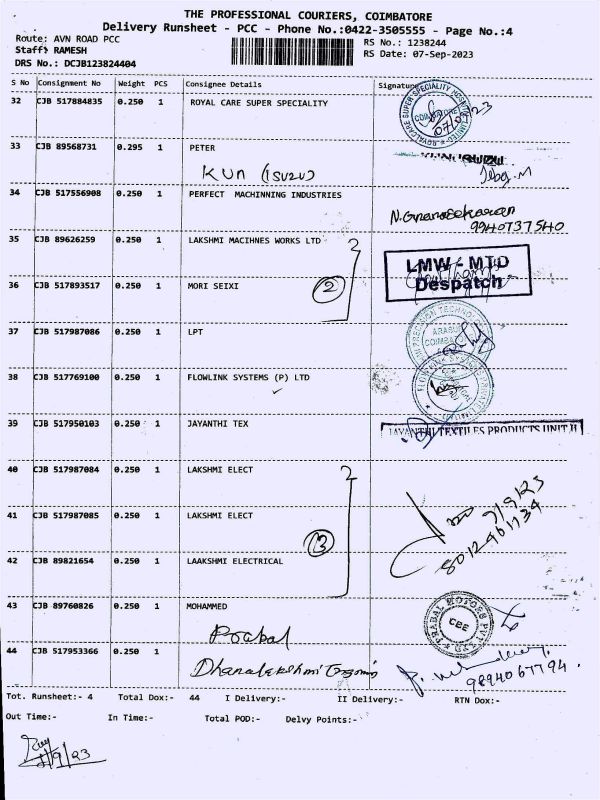 THE PROFESSIONAL COURIERS, COIMBATORE
Delivery Runsheet - PCC - Phone No.:0422-3505555 - Page No.:4
Route: AVN ROAD PCC
RS No.: 1238244
Staff: RAMESH
RS Date: 07-Sep-2023
DRS No.: DCJB123824404
S No Consignment No Weight PCS Consignee Details Signature
32 CJB 517884835 0.250 1 ROYAL CARE SUPER SPECIALITY
33 CJB 89568731 0.295 1 PETER
KUN (ISUZU)
34 CJB 517556908 0.250 1 PERFECT MACHINNING INDUSTRIES
N.Gnanasekaran
9940737540
35 CJB 89626259 0.250 1 LAKSHMI MACIHNES WORKS LTD
LMW - MTD
Despatch
36 CJB 517893517 0.250 1 MORI SEIXI
2
37 CJB 517987086 0.250 1 LPT
38 CJB 517769100 0.250 1 FLOWLINK SYSTEMS (P) LTD
39 CJB 517950103 0.250 1 JAYANTHI TEX
JAYANTHI TEXTILES PRODUCTS UNIT II
40 CJB 517987084 0.250 1 LAKSHMI ELECT
7/9/23
41 CJB 517987085 0.250 1 LAKSHMI ELECT
3
42 CJB 89821654 0.250 1 LAAKSHMI ELECTRICAL
43 CJB 89760826 0.250 1 MOHAMMED
Prabal
PRABAL MOTORS PVT LTD
CBE
44 CJB 517953366 0.250 1
Dhanalakshmi
9894067794
Tot. Runsheet:- 4 Total Dox:- 44 I Delivery:- II Delivery:- RTN Dox:-
Out Time:- In Time:- Total POD:- Delvy Points:-